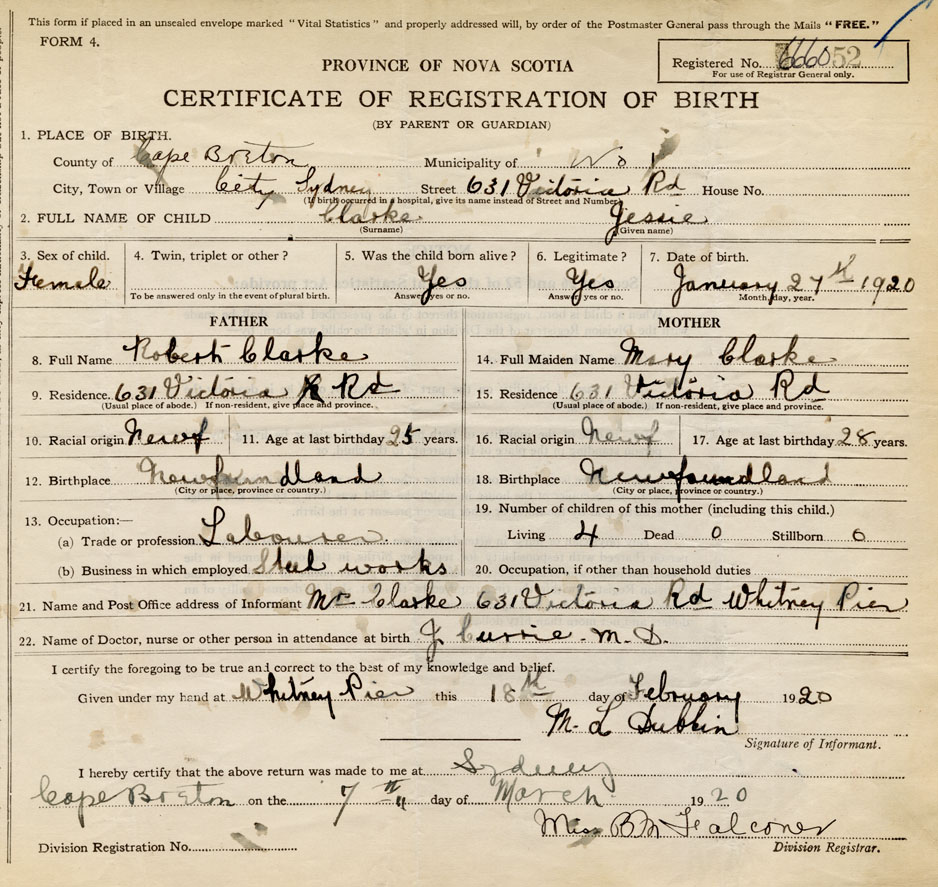 This form if placed in an unsealed envelope marked "Vital Statistics" and properly addressed will, by order of the Postmaster General pass through the Mails "FREE."
FORM 4.
Registered No. 666052
For use of Registrar General only.
PROVINCE OF NOVA SCOTIA
CERTIFICATE OF REGISTRATION OF BIRTH
(BY PARENT OR GUARDIAN)
1. PLACE OF BIRTH.
County of Cape Breton Municipality of No 1
City, Town or Village City Sydney Street 631 Victoria Rd House No.
(If birth occurred in a hospital, give its name instead of Street and Number)
2. FULL NAME OF CHILD Clarke Jessie
(Surname) (Given name)
3. Sex of child. 4. Twin, triplet or other? 5. Was the child born alive? 6. Legitimate? 7. Date of birth.
Female Yes Yes January 27th 1920
To be answered only in the event of plural birth. Answer yes or no. Answer yes or no. Month, day, year.
FATHER MOTHER
8. Full Name Robert Clarke 14. Full Maiden Name Mary Clarke
9. Residence. 631 Victoria Rd 15. Residence 631 Victoria Rd
(Usual place of abode.) If non-resident, give place and province. (Usual place of abode.) If non-resident, give place and province.
10. Racial origin Newf 11. Age at last birthday 25 years. 16. Racial origin Newf 17. Age at last birthday 28 years.
12. Birthplace Newfoundland 18. Birthplace Newfoundland
(City or place, province or country.) (City or place, province or country.)
13. Occupation:— 19. Number of children of this mother (including this child.)
(a) Trade or profession Labourer Living 4 Dead 0 Stillborn 0
(b) Business in which employed Steel works 20. Occupation, if other than household duties
21. Name and Post Office address of Informant Mr Clarke 631 Victoria Rd Whitney Pier
22. Name of Doctor, nurse or other person in attendance at birth J Currie. M. D.
I certify the foregoing to be true and correct to the best of my knowledge and belief.
Given under my hand at Whitney Pier this 18th day of February 1920
M. L Dubbin
Signature of Informant.
I hereby certify that the above return was made to me at Sydney
Cape Breton on the 7th day of March 1920
Miss B M Falconer
Division Registration No. Division Registrar.